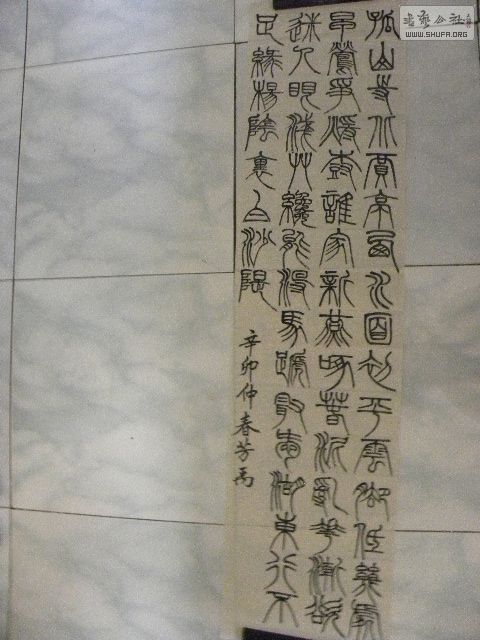 孤山寺北賈亭西水面初平雲腳低幾處
早鶯爭暖樹誰家新燕啄春泥亂花漸欲
迷人眼淺艸纔能沒馬蹏最愛湖東行不
足綠楊陰裏白沙隄
辛卯仲春芳禹
書藝公社
WWW.SHUFA.ORG